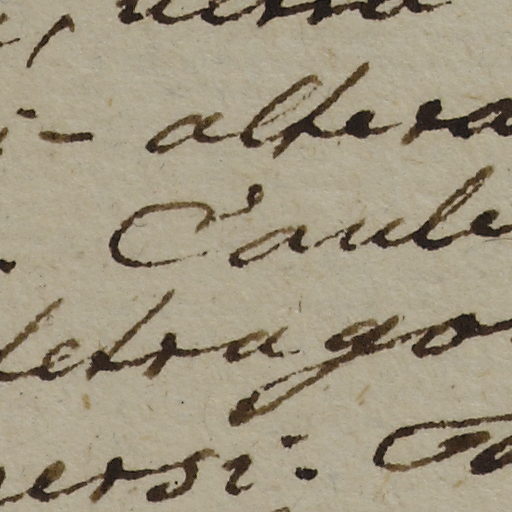 - altera
. Caule
tetrago
ersi.